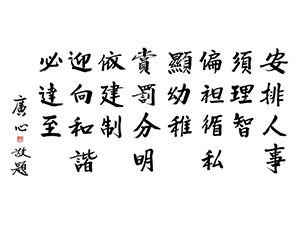 安排人事
須理智
偏袒循私
顯幼稚
賞罰分明
依建制
迎向和諧
必達至
廣心敬題